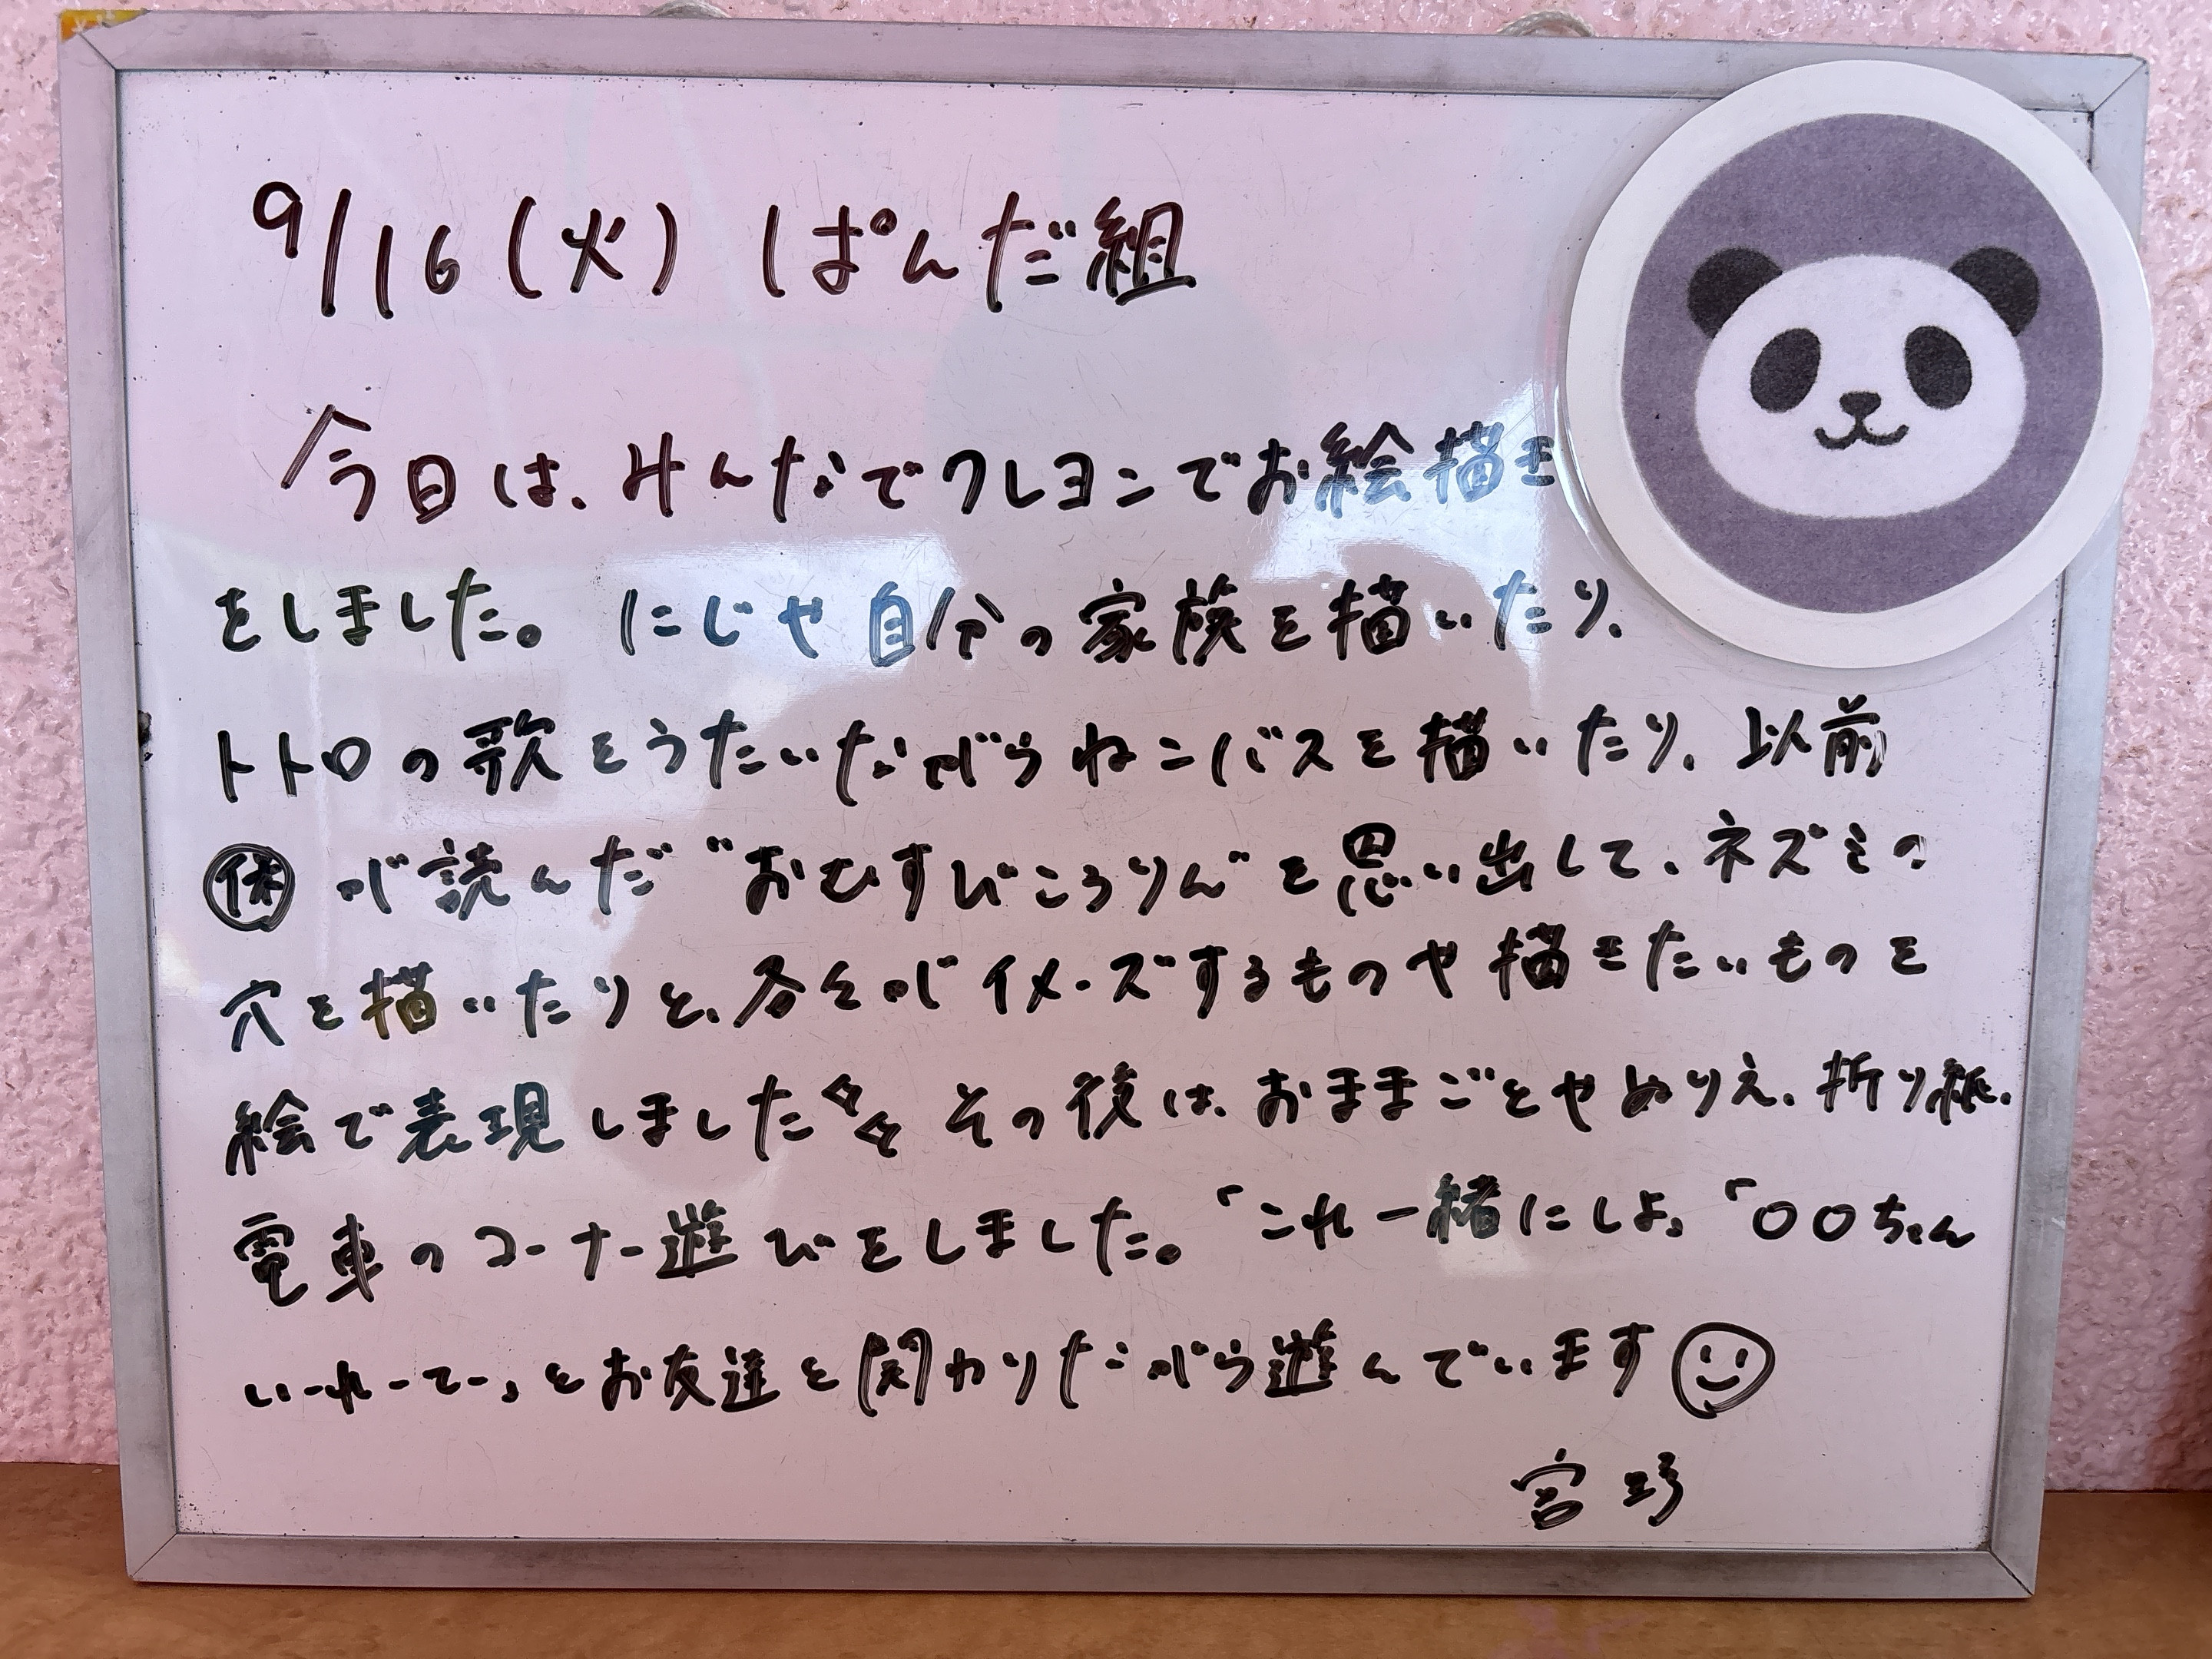 9/16(火) ぱんだ組
今日は、みんなでクレヨンでお絵描き
をしました。にじや自分の家族を描いたり、
トトロの歌をうたいながらねこバスを描いたり、以前
が読んだ"おむすびころりん"を思い出して、ネズミの
穴を描いたりと、各々がイメーズするものや描きたいものを
絵で表現しました その後は、おままごとやぬりえ、折り紙、
電車のコーナー遊びをしました。「これ一緒にしよ」「〇〇ちゃん
いーれーてー」とお友達と関わりながら遊んでいます
宮